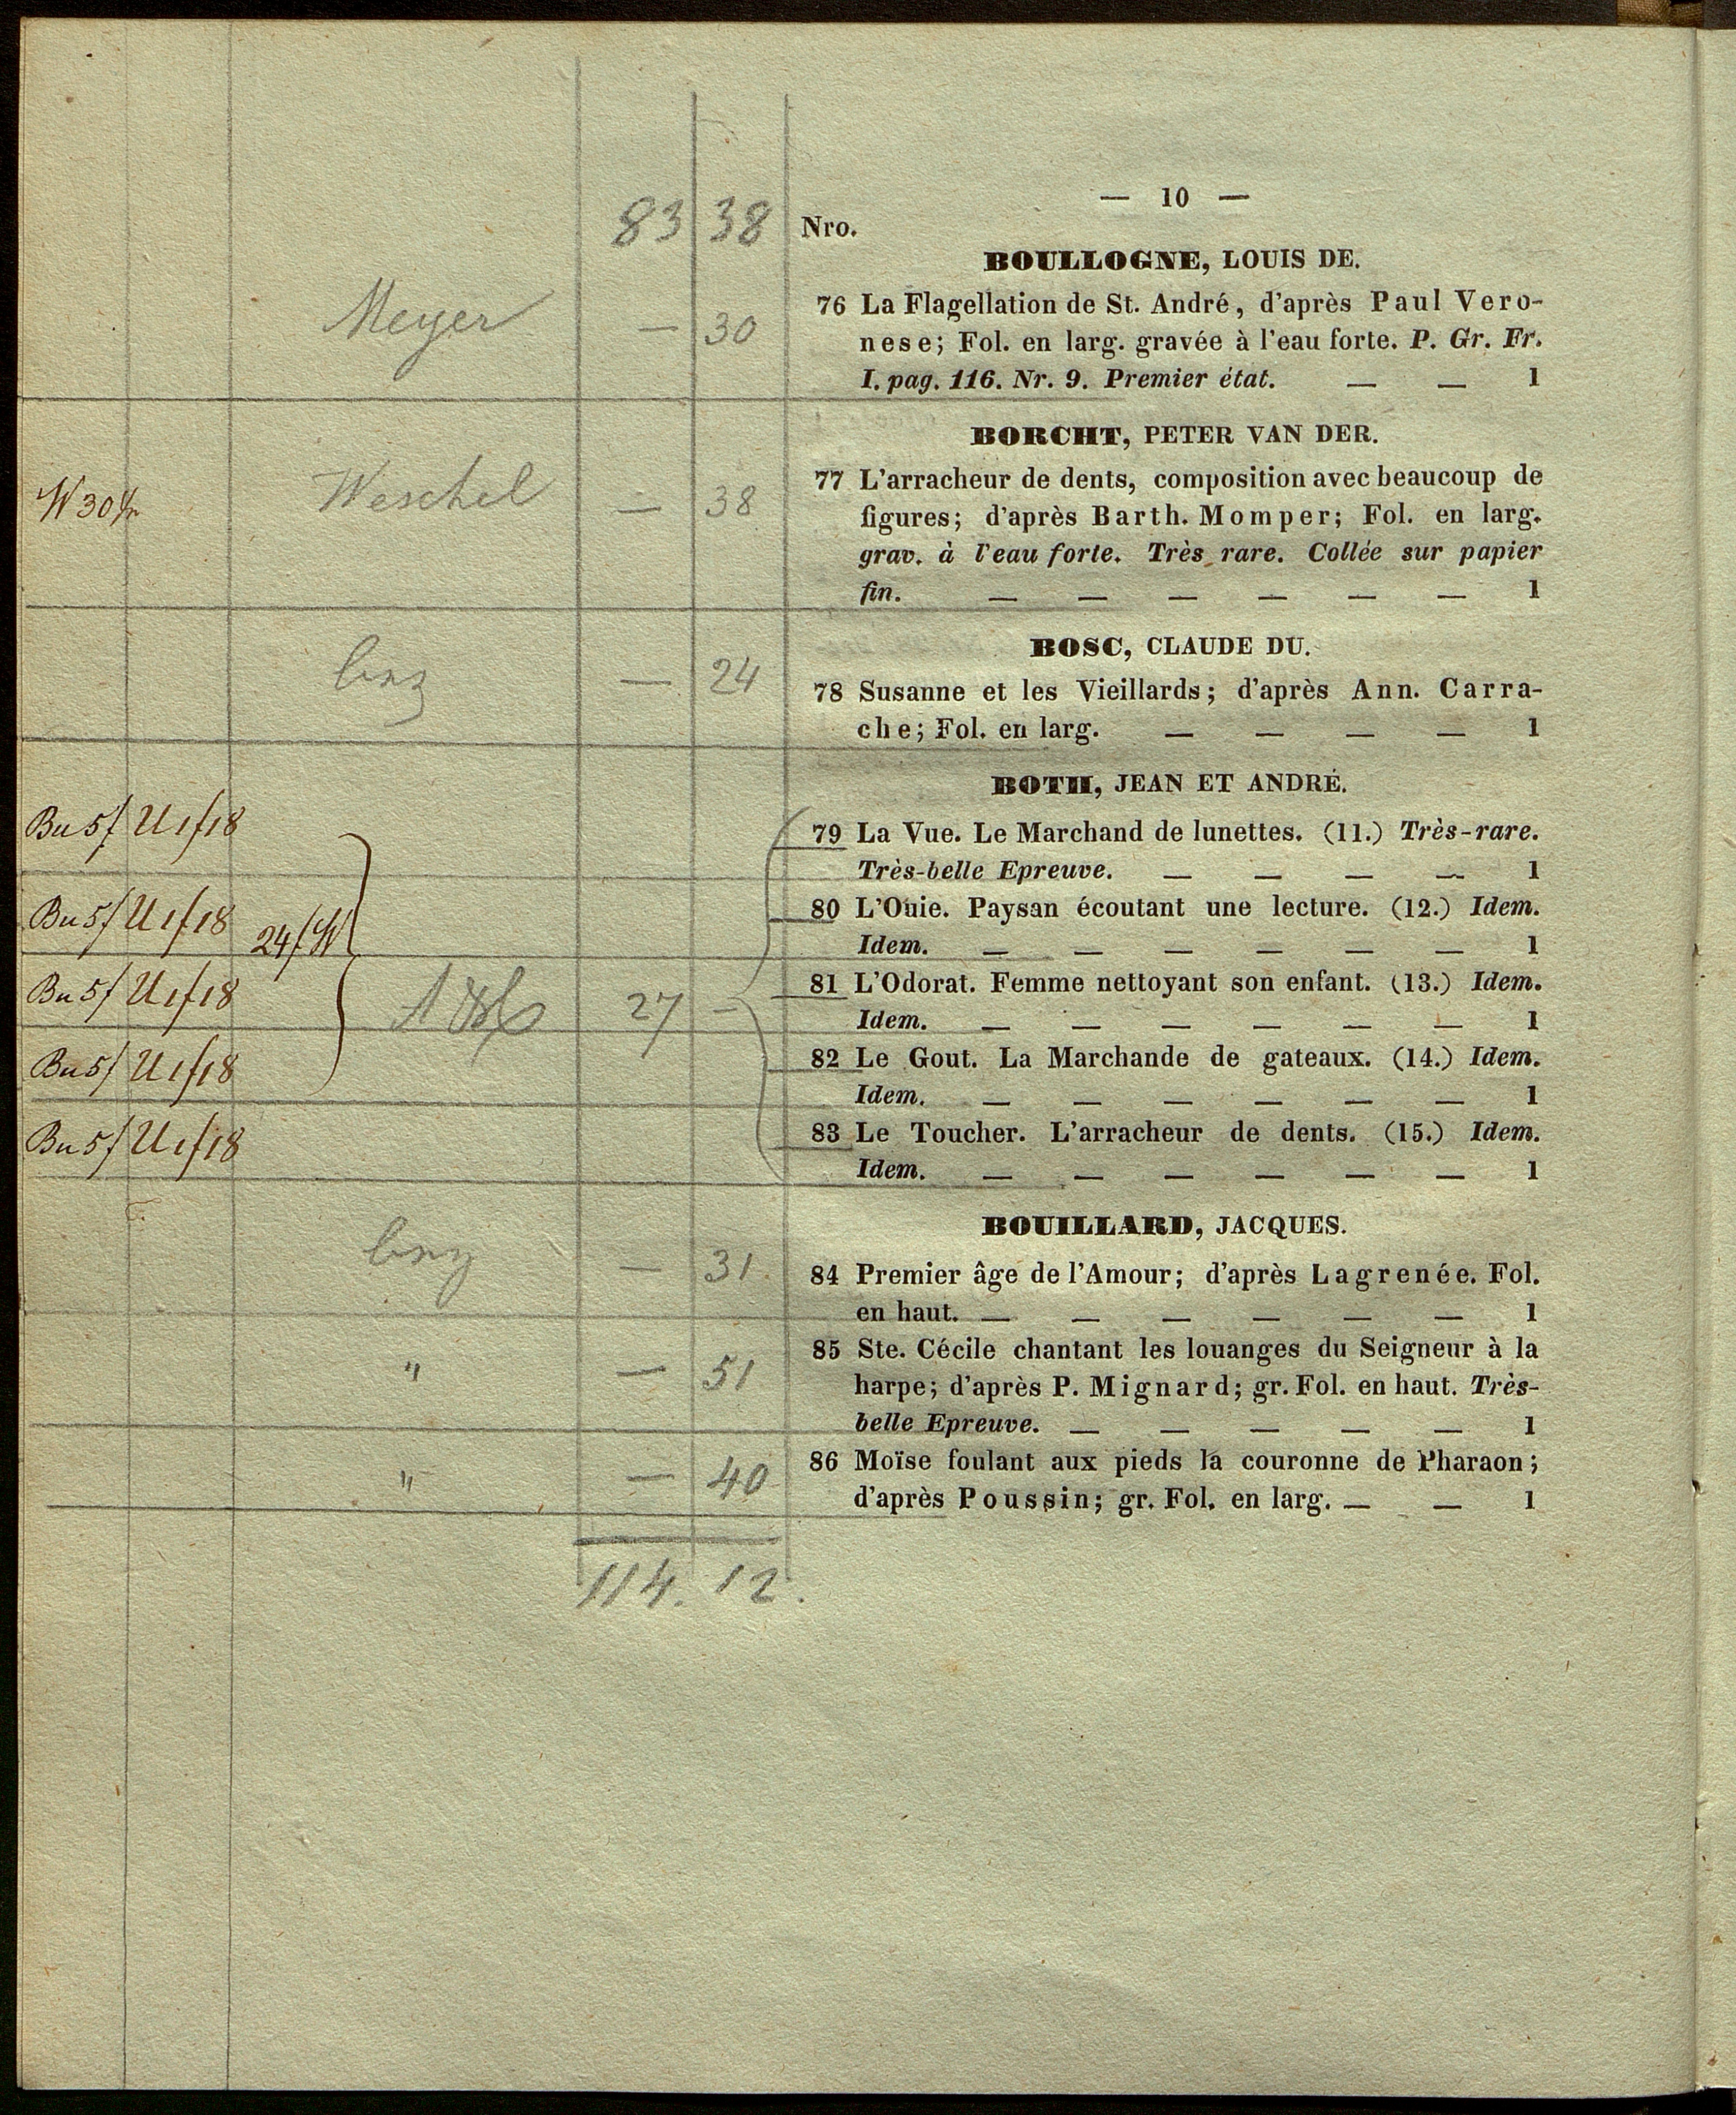 — 10 —
83 38 Nro.
BOULLOGNE, LOUIS DE.
76 La Flagellation de St. André, d'après Paul Vero-
Meyer — 30
nese; Fol. en larg. gravée à l'eau forte. P. Gr. Fr.
I. pag. 116. Nr. 9. Premier état. — — 1
BORCHT, PETER VAN DER.
77 L'arracheur de dents, composition avec beaucoup de
W 30 Weschel — 38
figures; d'après Barth. Momper; Fol. en larg.
grav. à l'eau forte. Très rare. Collée sur papier
fin. — — — — — — 1
BOSC, CLAUDE DU.
— 24
78 Susanne et les Vieillards; d'après Ann. Carra-
che; Fol. en larg. — — — — 1
BOTH, JEAN ET ANDRÉ.
Bu 5f U 1f18
79 La Vue. Le Marchand de lunettes. (11.) Très-rare.
Très-belle Epreuve. — — — — 1
Bu 5f U 1f18 24f W
80 L'Ouie. Paysan écoutant une lecture. (12.) Idem.
Idem. — — — — — — 1
Bu 5f U 1f18 27 —
81 L'Odorat. Femme nettoyant son enfant. (13.) Idem.
Idem. — — — — — — 1
Bu 5f U 1f18
82 Le Gout. La Marchande de gateaux. (14.) Idem.
Idem. — — — — — — 1
Bu 5f U 1f18
83 Le Toucher. L'arracheur de dents. (15.) Idem.
Idem. — — — — — — 1
BOUILLARD, JACQUES.
— 31.
84 Premier âge de l'Amour; d'après Lagrenée. Fol.
en haut. — — — — — — 1
" — 51
85 Ste. Cécile chantant les louanges du Seigneur à la
harpe; d'après P. Mignard; gr. Fol. en haut. Très-
belle Epreuve. — — — — — 1
" — 40
86 Moïse foulant aux pieds la couronne de Pharaon;
d'après Poussin; gr. Fol. en larg. — — 1
114. 12.